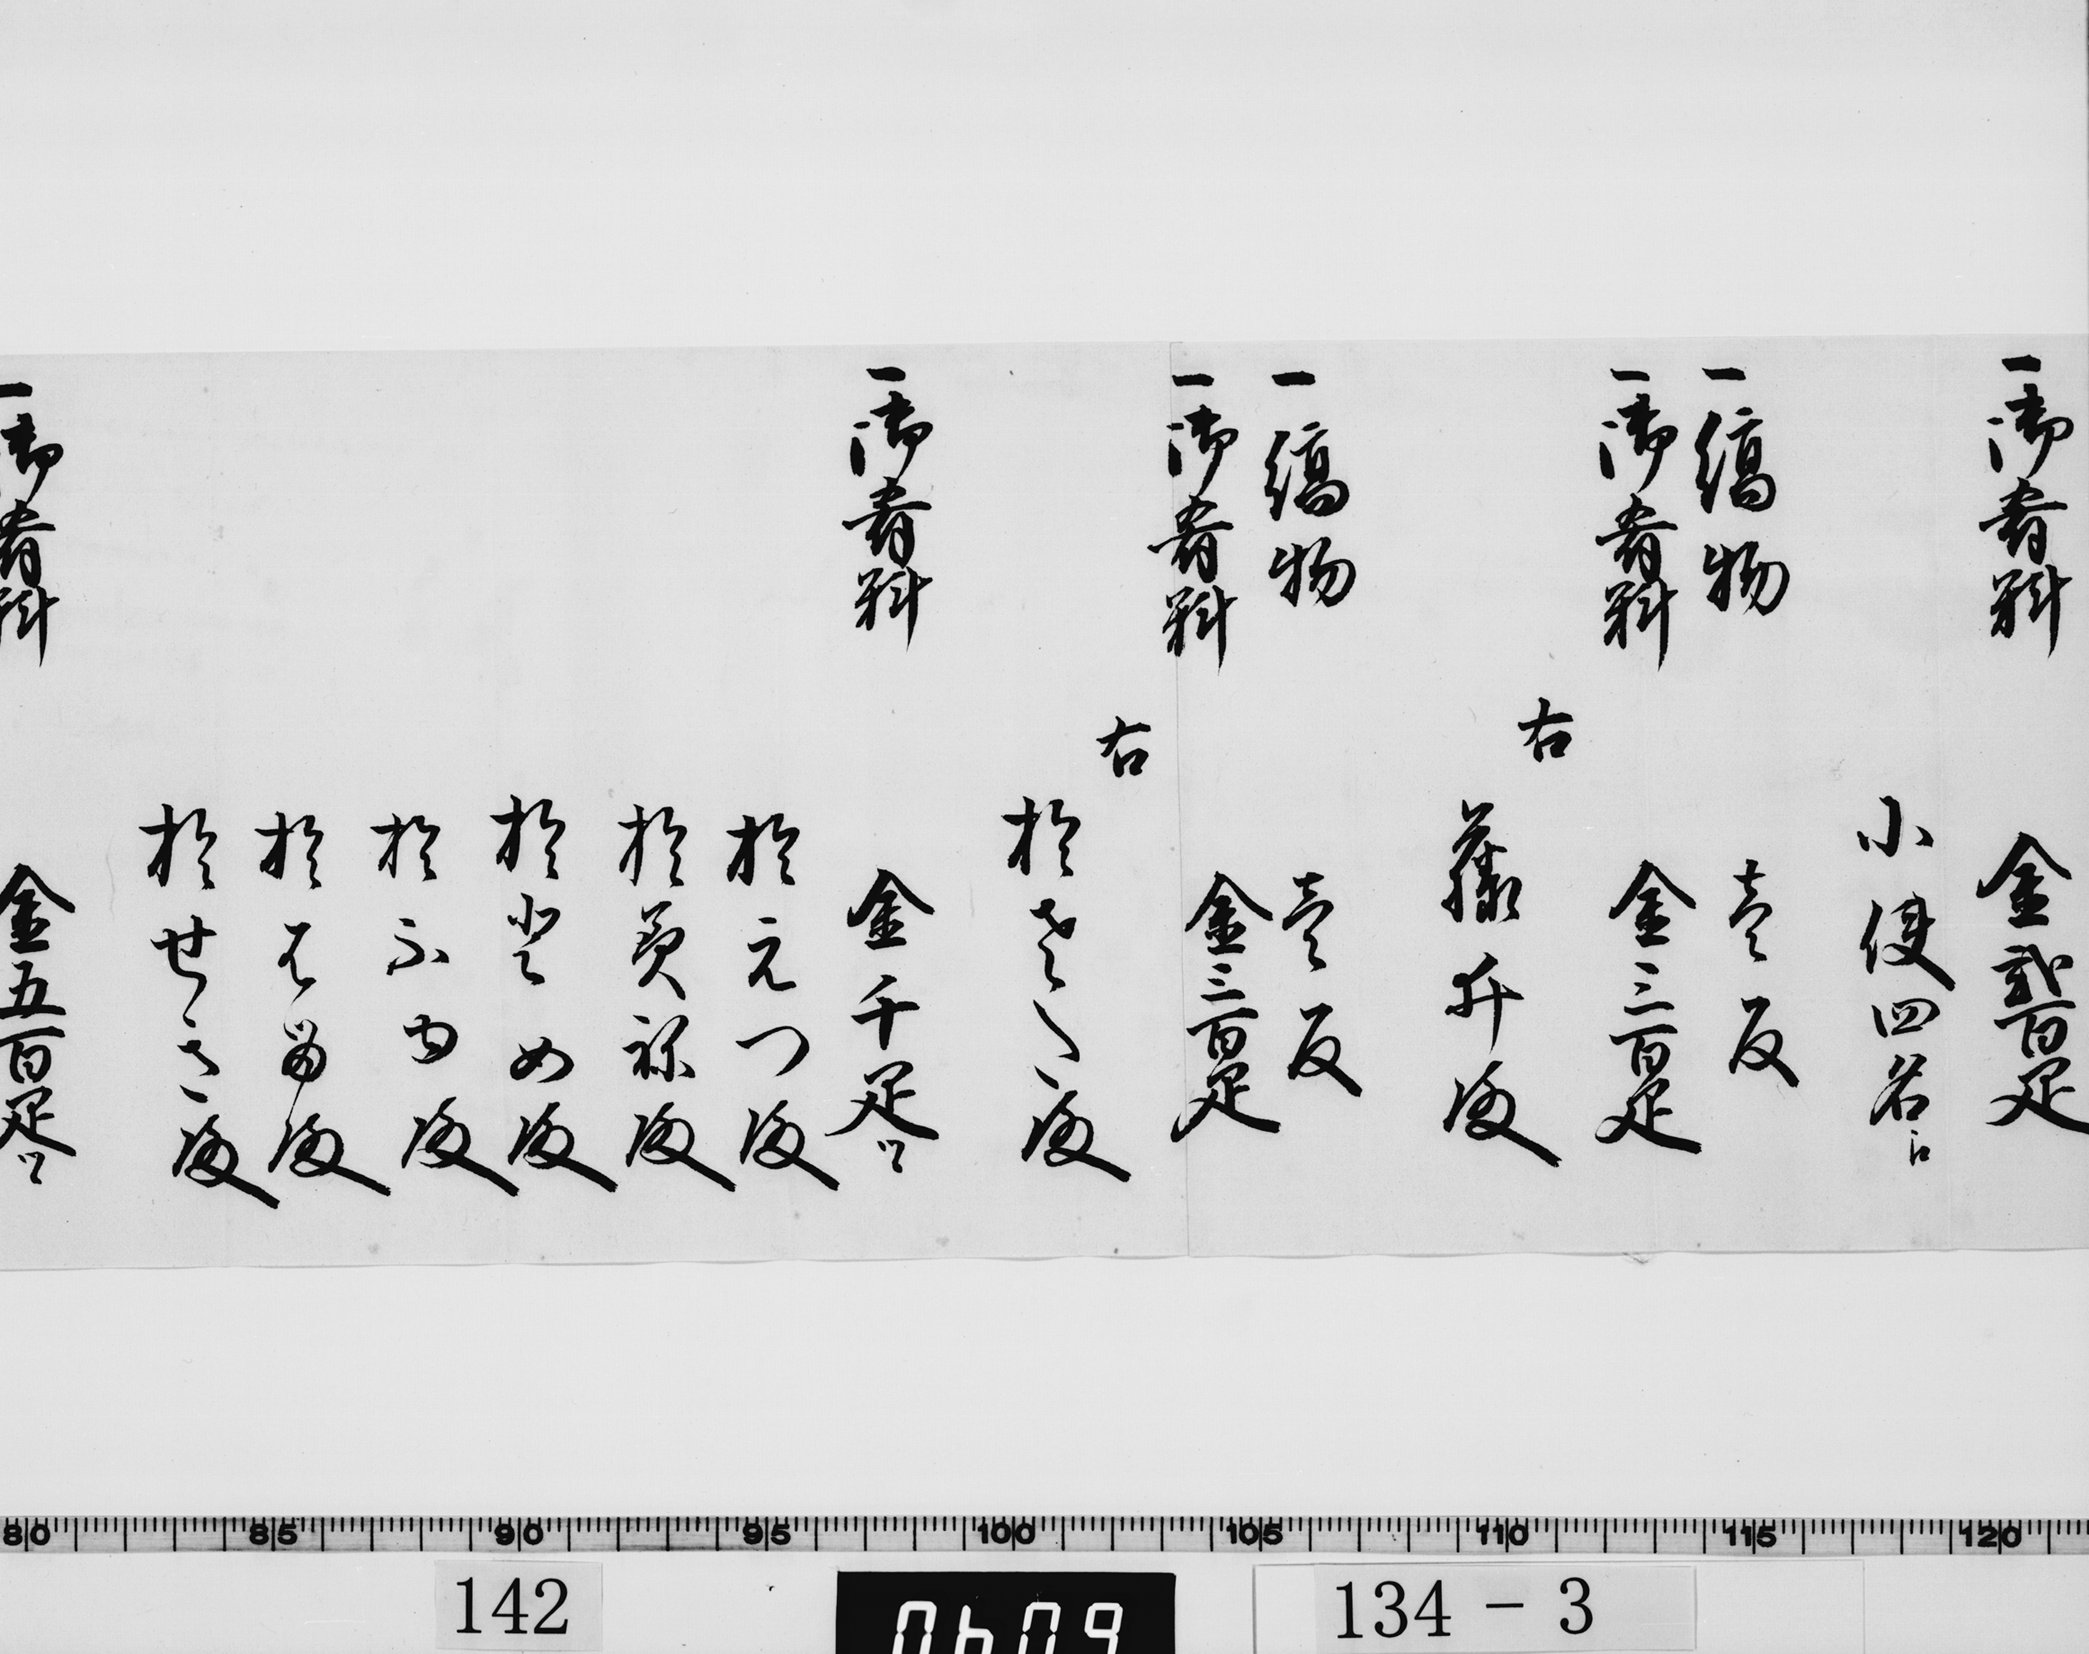 一御肴料 金弐百疋
小使四名江
一縞物 壱反
一御肴料 金三百疋
右
藤井殿
一縞物 壱反
一御肴料 金三百疋
右
於きく殿
一御肴料 金千疋ツヽ
於えつ殿
於美祢殿
於登め殿
於ふゆ殿
於はる殿
於せき殿
一御肴料 金五百疋ツヽ
80 85 90 95 100 105 110 115 120
142
0609
134-3